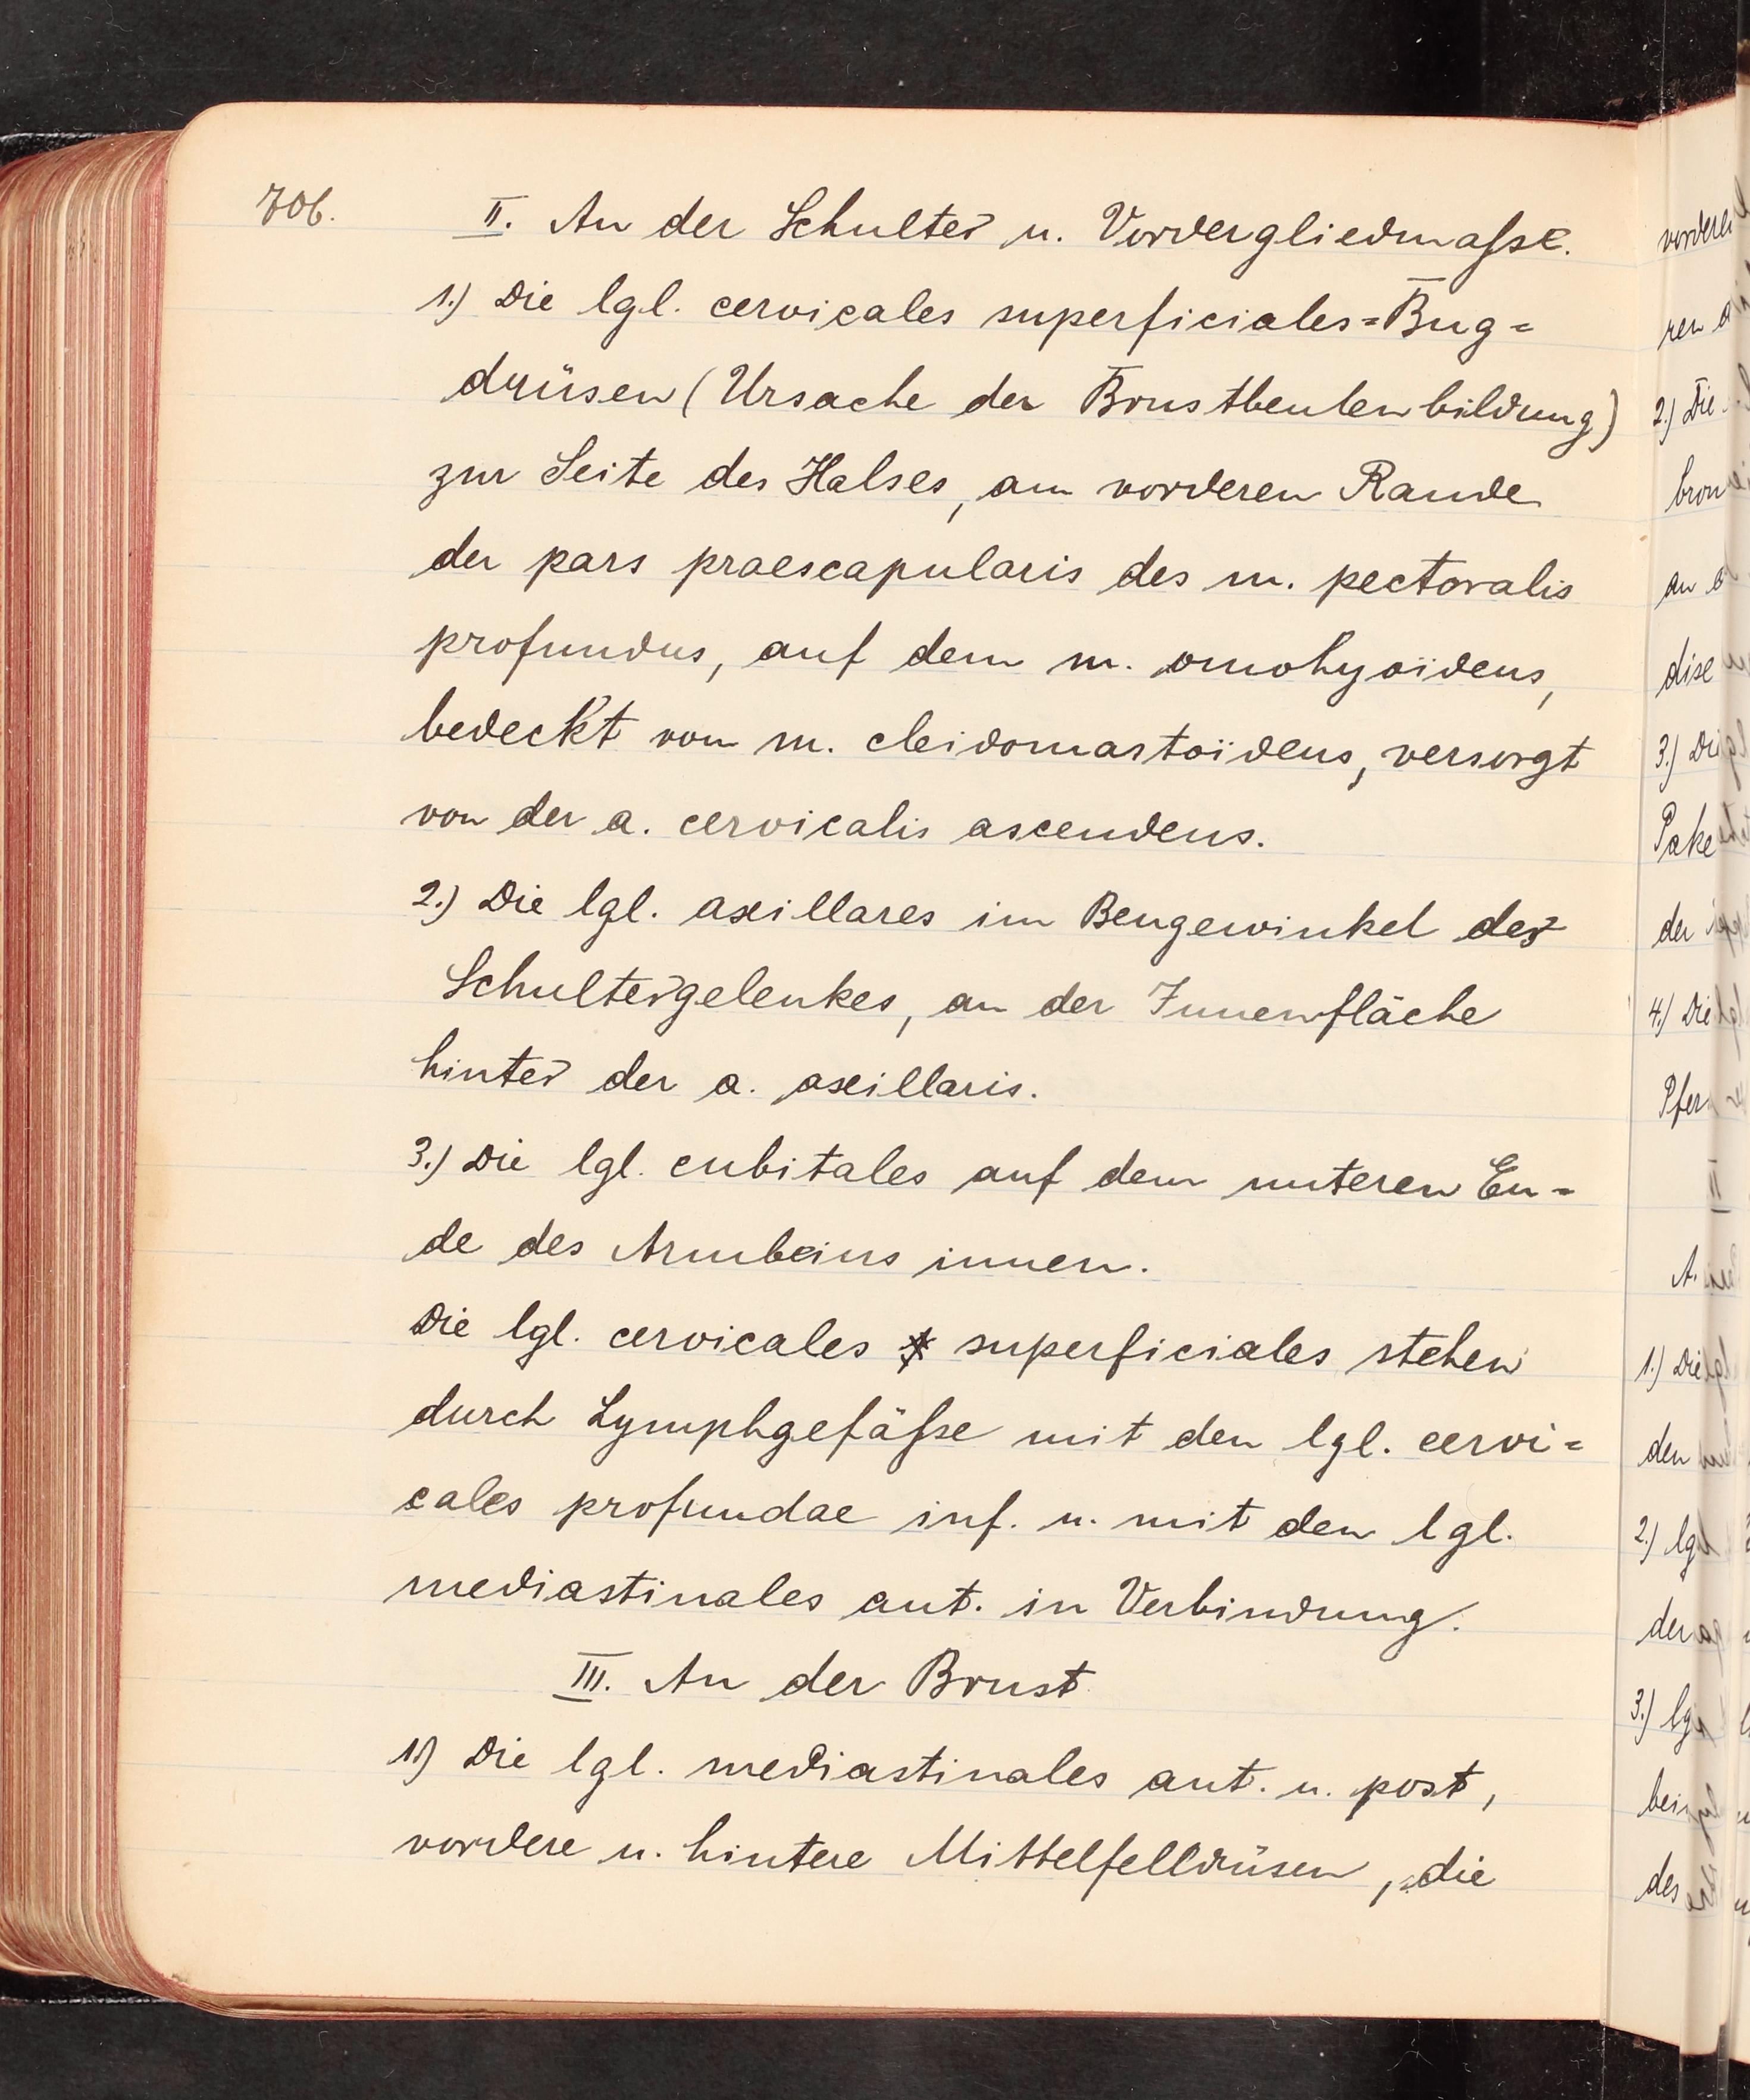 706.
II. An der Schulter u. Vordergliedmaſse.
1.) Die lgl. cervicales superficiales=Bug=
drüsen (Ursache der Brustbeulenbildung)
zur Seite des Halses, am vorderen Rande
der pars praescapularis des m. pectoralis
profundus, auf dem m. omohyoïdeus,
bedeckt vom m. cleidomastoïdeus, versorgt
von der a. cervicalis ascendens.
2.) Die lgl. axillares im Beugewinkel des
Schultergelenkes, an der Innenfläche
hinter der a. axillaris.
3.) Die lgl. cubitales auf dem unteren En=
de des Armbeins innen.
Die lgl. cervicales superficiales stehen
durch Lymphgefäſse mit den lgl. cervi=
cales profundae inf. u. mit den lgl.
mediastinales ant. in Verbindung.
III. An der Brust
1.) Die lgl. mediastinales ant. u. post,
vordere u. hintere Mittelfelldrüsen, die
vordere
ren
2.) Die
bron
an
dise
3.) Die
Pake
der
4.) Die
Pfer
II
A.
1.) Die
den
2.) lgl
der
3.) lgl
bei
des